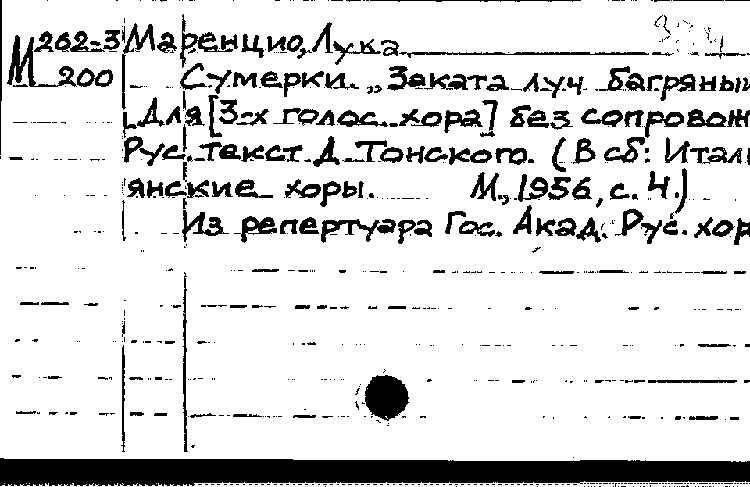 М 262-3 Маренцио, Лука
200 Сумерки. „Заката луч багряный
[Для [3-х голос. хора] без сопровож
Рус. текст Д. Тонского. (В сб: Итал
янские хоры. М., 1956, с. 4.)
Из репертуара Гос. Акад. Рус. хор